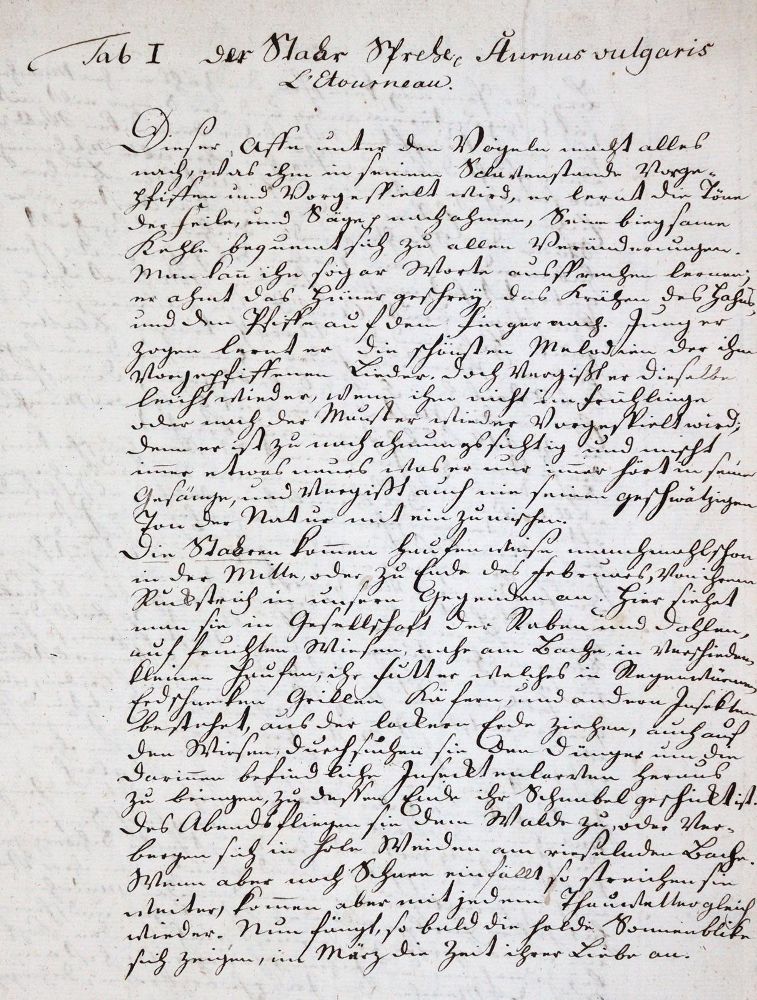 Tab I der Stahr Sprehe, Sturnus vulgaris
L'Etourneau.
Dieser Affe unter den Vögeln macht alles
nach, was ihm in seinem Sclavenstande Vorge-
pfiffen und Vorgespielt wird, er lernt die Töne
der Feile, und Säge nachahmen, Seine biegsame
Kehle bequemt sich zu allen Veränderungen.
Man kan ihn sogar Worte aussprechen lernen;
er ahmt das Hünergeschrey, das Krähen des Hahns,
und den Pfiff auf dem Finger nach. Jung er
zogen lernt er die schönsten Melodien der ihm
Vorgepfiffenen Lieder, doch Vergißt er dieselbe
leicht wieder, wenn ihm nicht im Frühlinge
oder nach der Mauster wieder Vorgespielt wird;
denn er ist zu nachahmungssichtig und mischt
immer etwas neues was er nur immer hört in seine
Gesänge, und Vergißt auch nie seinen geschwätzigen
Ton der Natur mit ein zu mischen.
Die Stahren kommen haufenweise manchmahl schon
in der Mitte, oder zu Ende des Februars, Von ihrem
Ruckstrich in unsern Gegenden an. Hier siehet
man sie in Gesellschaft der Raben und Dohlen,
auf feuchten Wiesen, nahe am Bache, in Verschieden
kleinen Haufen, ihr Futter welches in Regenwürmern
Erdschneken Grillen Käfern, und andern Insekten
bestehet, aus der lockern Erde ziehen, auch auf
den Wiesen, durchsuchen sie den Dünger um die
darinnen befindliche Insecktenlarven heraus
zu bringen, zu dessen Ende ihr Schnabel geschickt ist.
Des Abends fliegen sie dem Walde zu, oder Ver-
bergen sich in hole Weiden am rieselnden Bache.
Wenn aber noch Schnee einfällt so streichen sie
weiter, kommen aber mit jedem Thauwetter gleich
wieder. Nun fängt, so bald die holde Sonnenblike
sich zeigen, im März die Zeit ihrer Liebe an.